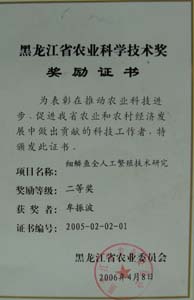 黑龙江省农业科学技术奖
奖励证书
为表彰在推动农业科技进
步、促进我省农业和农村经济发
展中做出贡献的科技工作者，特
颁发此证书。
项目名称：细鳞鱼全人工繁殖技术研究
奖励等级：二等奖
获奖者：牟振波
证书编号：2005-02-02-01
黑龙江省农业委员会
2006年4月8日